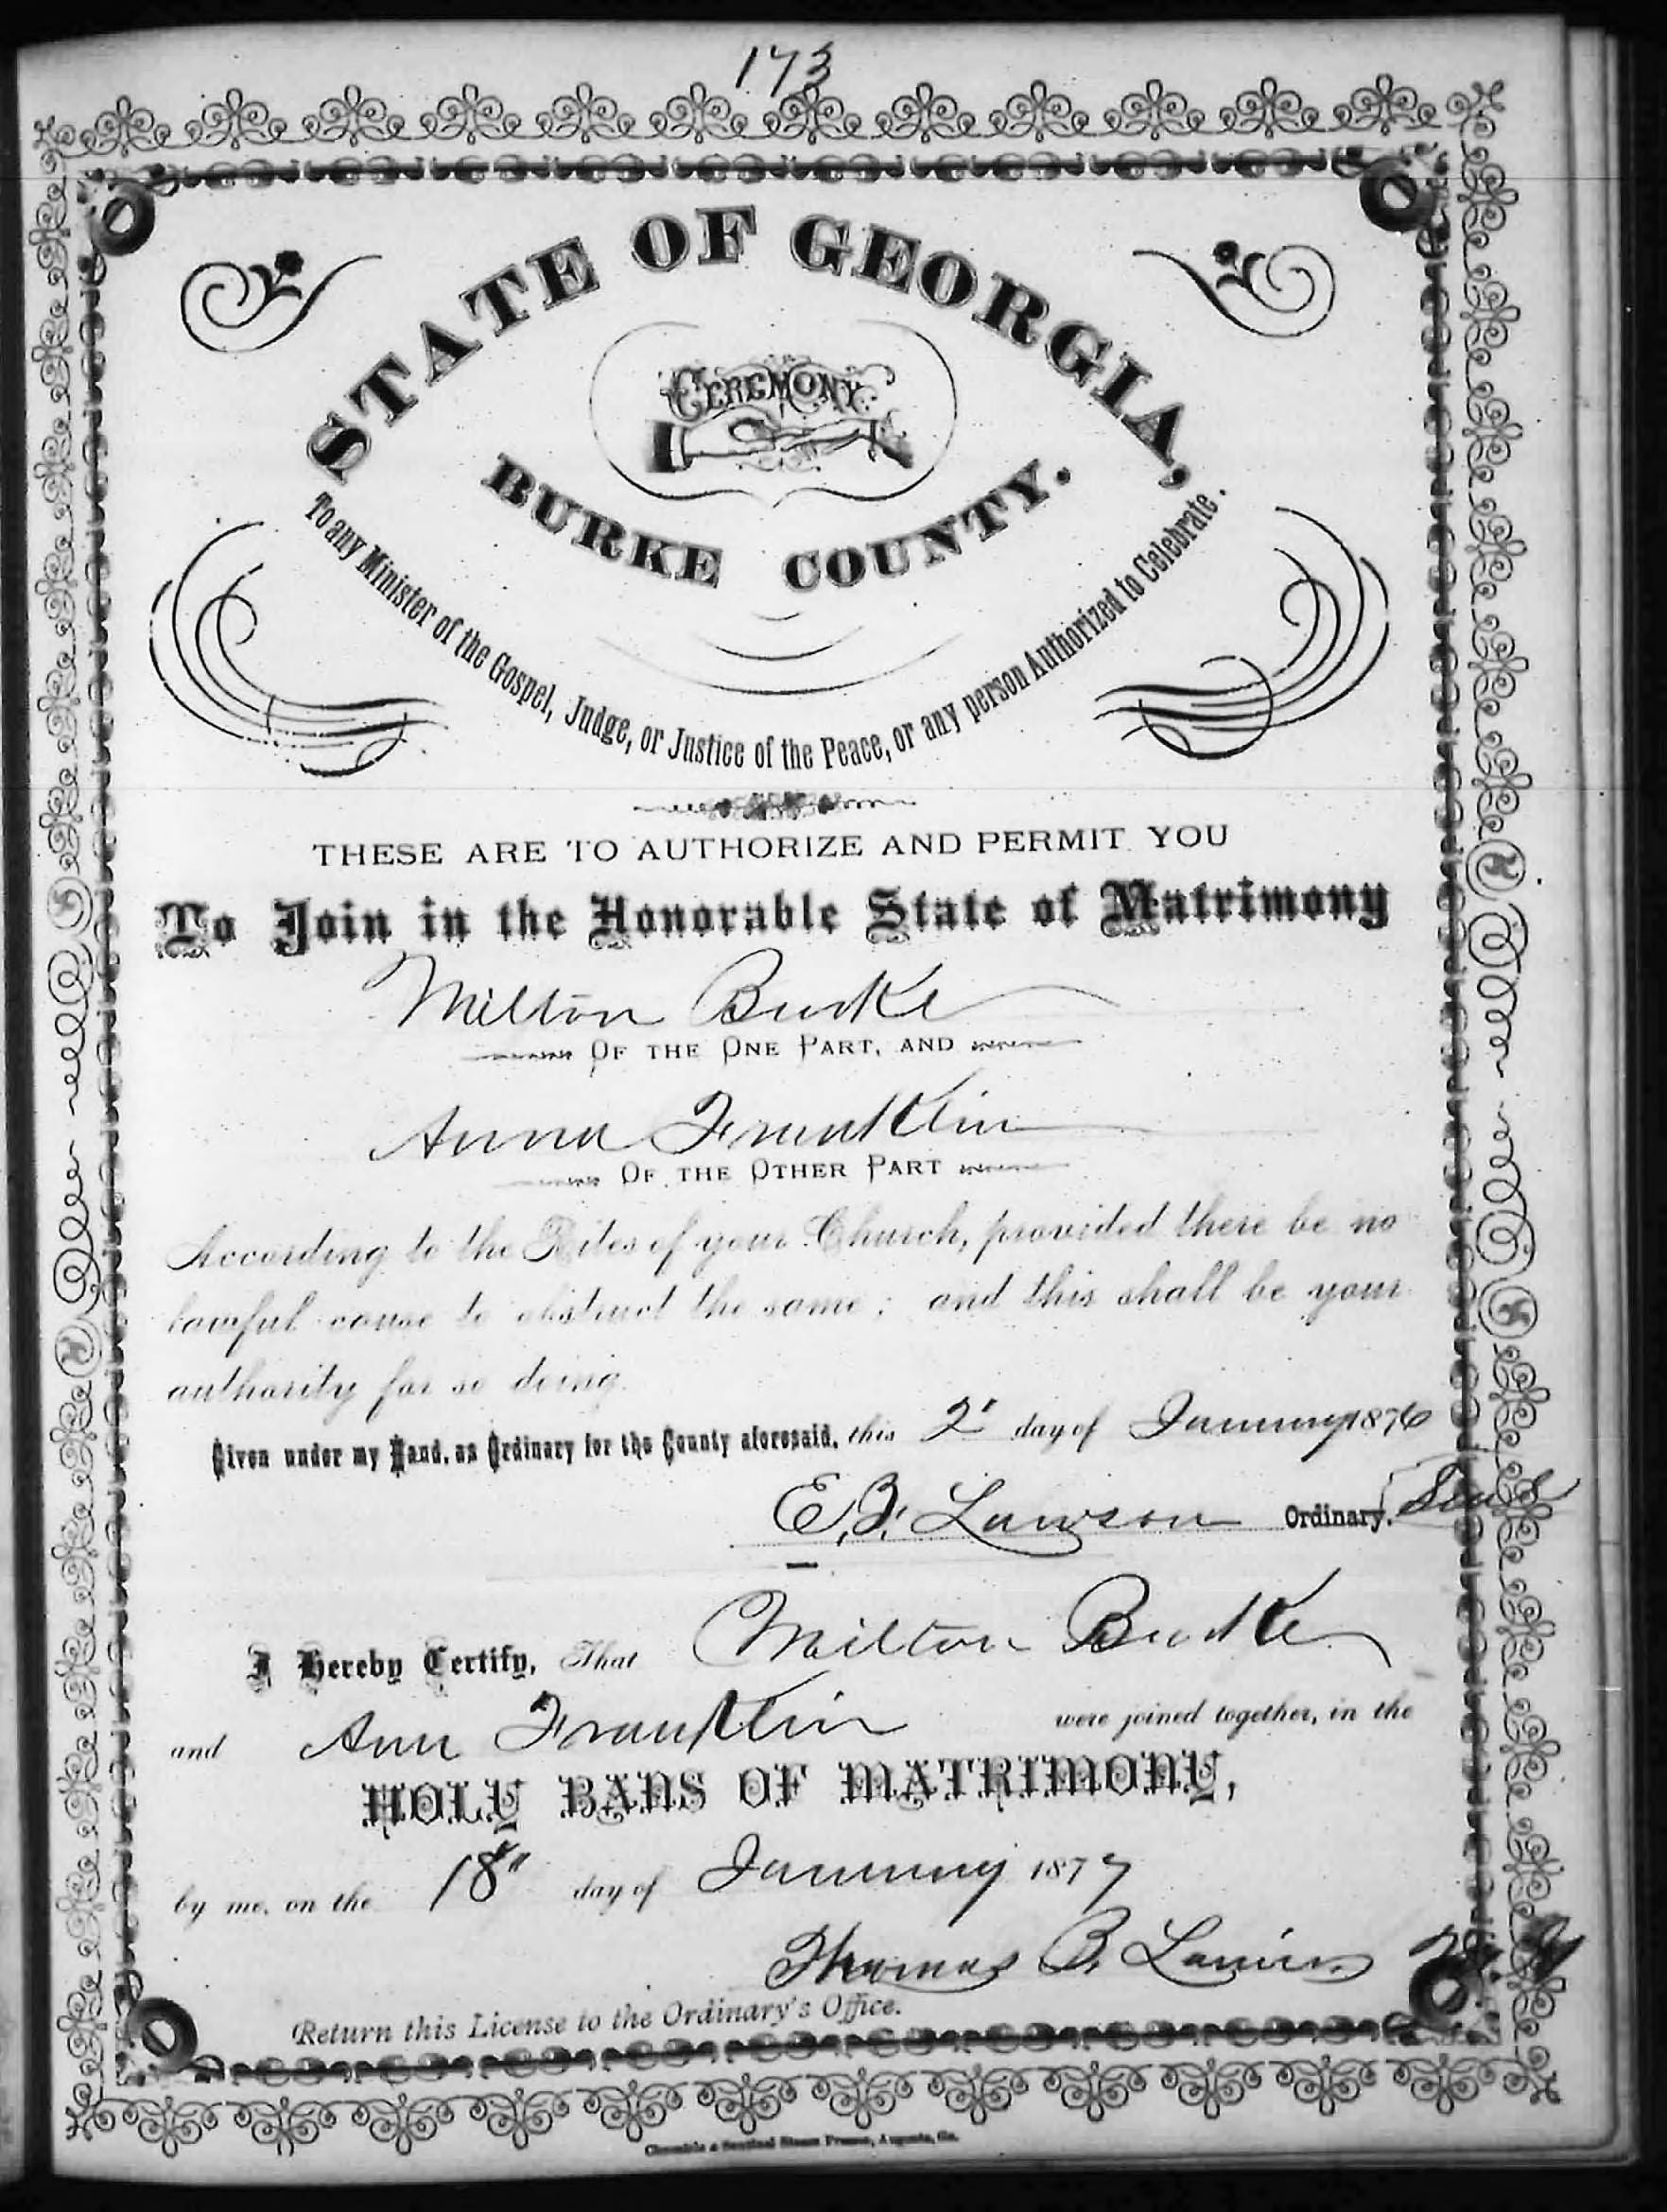 173
STATE OF GEORGIA,
CEREMONY
BURKE COUNTY.
To any Minister of the Gospel, Judge, or Justice of the Peace, or any person Authorized to Celebrate.
THESE ARE TO AUTHORIZE AND PERMIT YOU
To Join in the Honorable State of Matrimony
Milton Burke
OF THE ONE PART, AND
Anna Franklin
OF THE OTHER PART
According to the Rites of your Church, provided there be no
lawful cause to obstruct the same; and this shall be your
authority for so doing.
Given under my Hand, as Ordinary for the County aforesaid, this 2d day of January 1876
E. F. Lawson Ordinary. Seal
I Hereby Certify, That Milton Burke
and Ann Franklin were joined together, in the
HOLY BANS OF MATRIMONY,
by me, on the 18th day of January 1877
Thomas B. Lanier
Return this License to the Ordinary's Office.
Chronicle & Sentinel Steam Presses, Augusta, Ga.